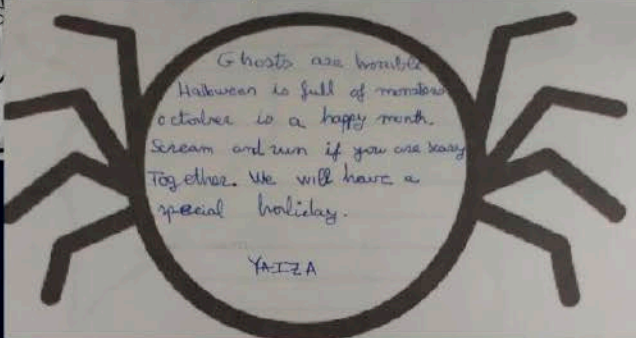 Ghosts are horrible
Halloween is full of monsters
october is a happy month.
Scream and run if you are scary
Together. We will have a
special holiday.
YAIZA